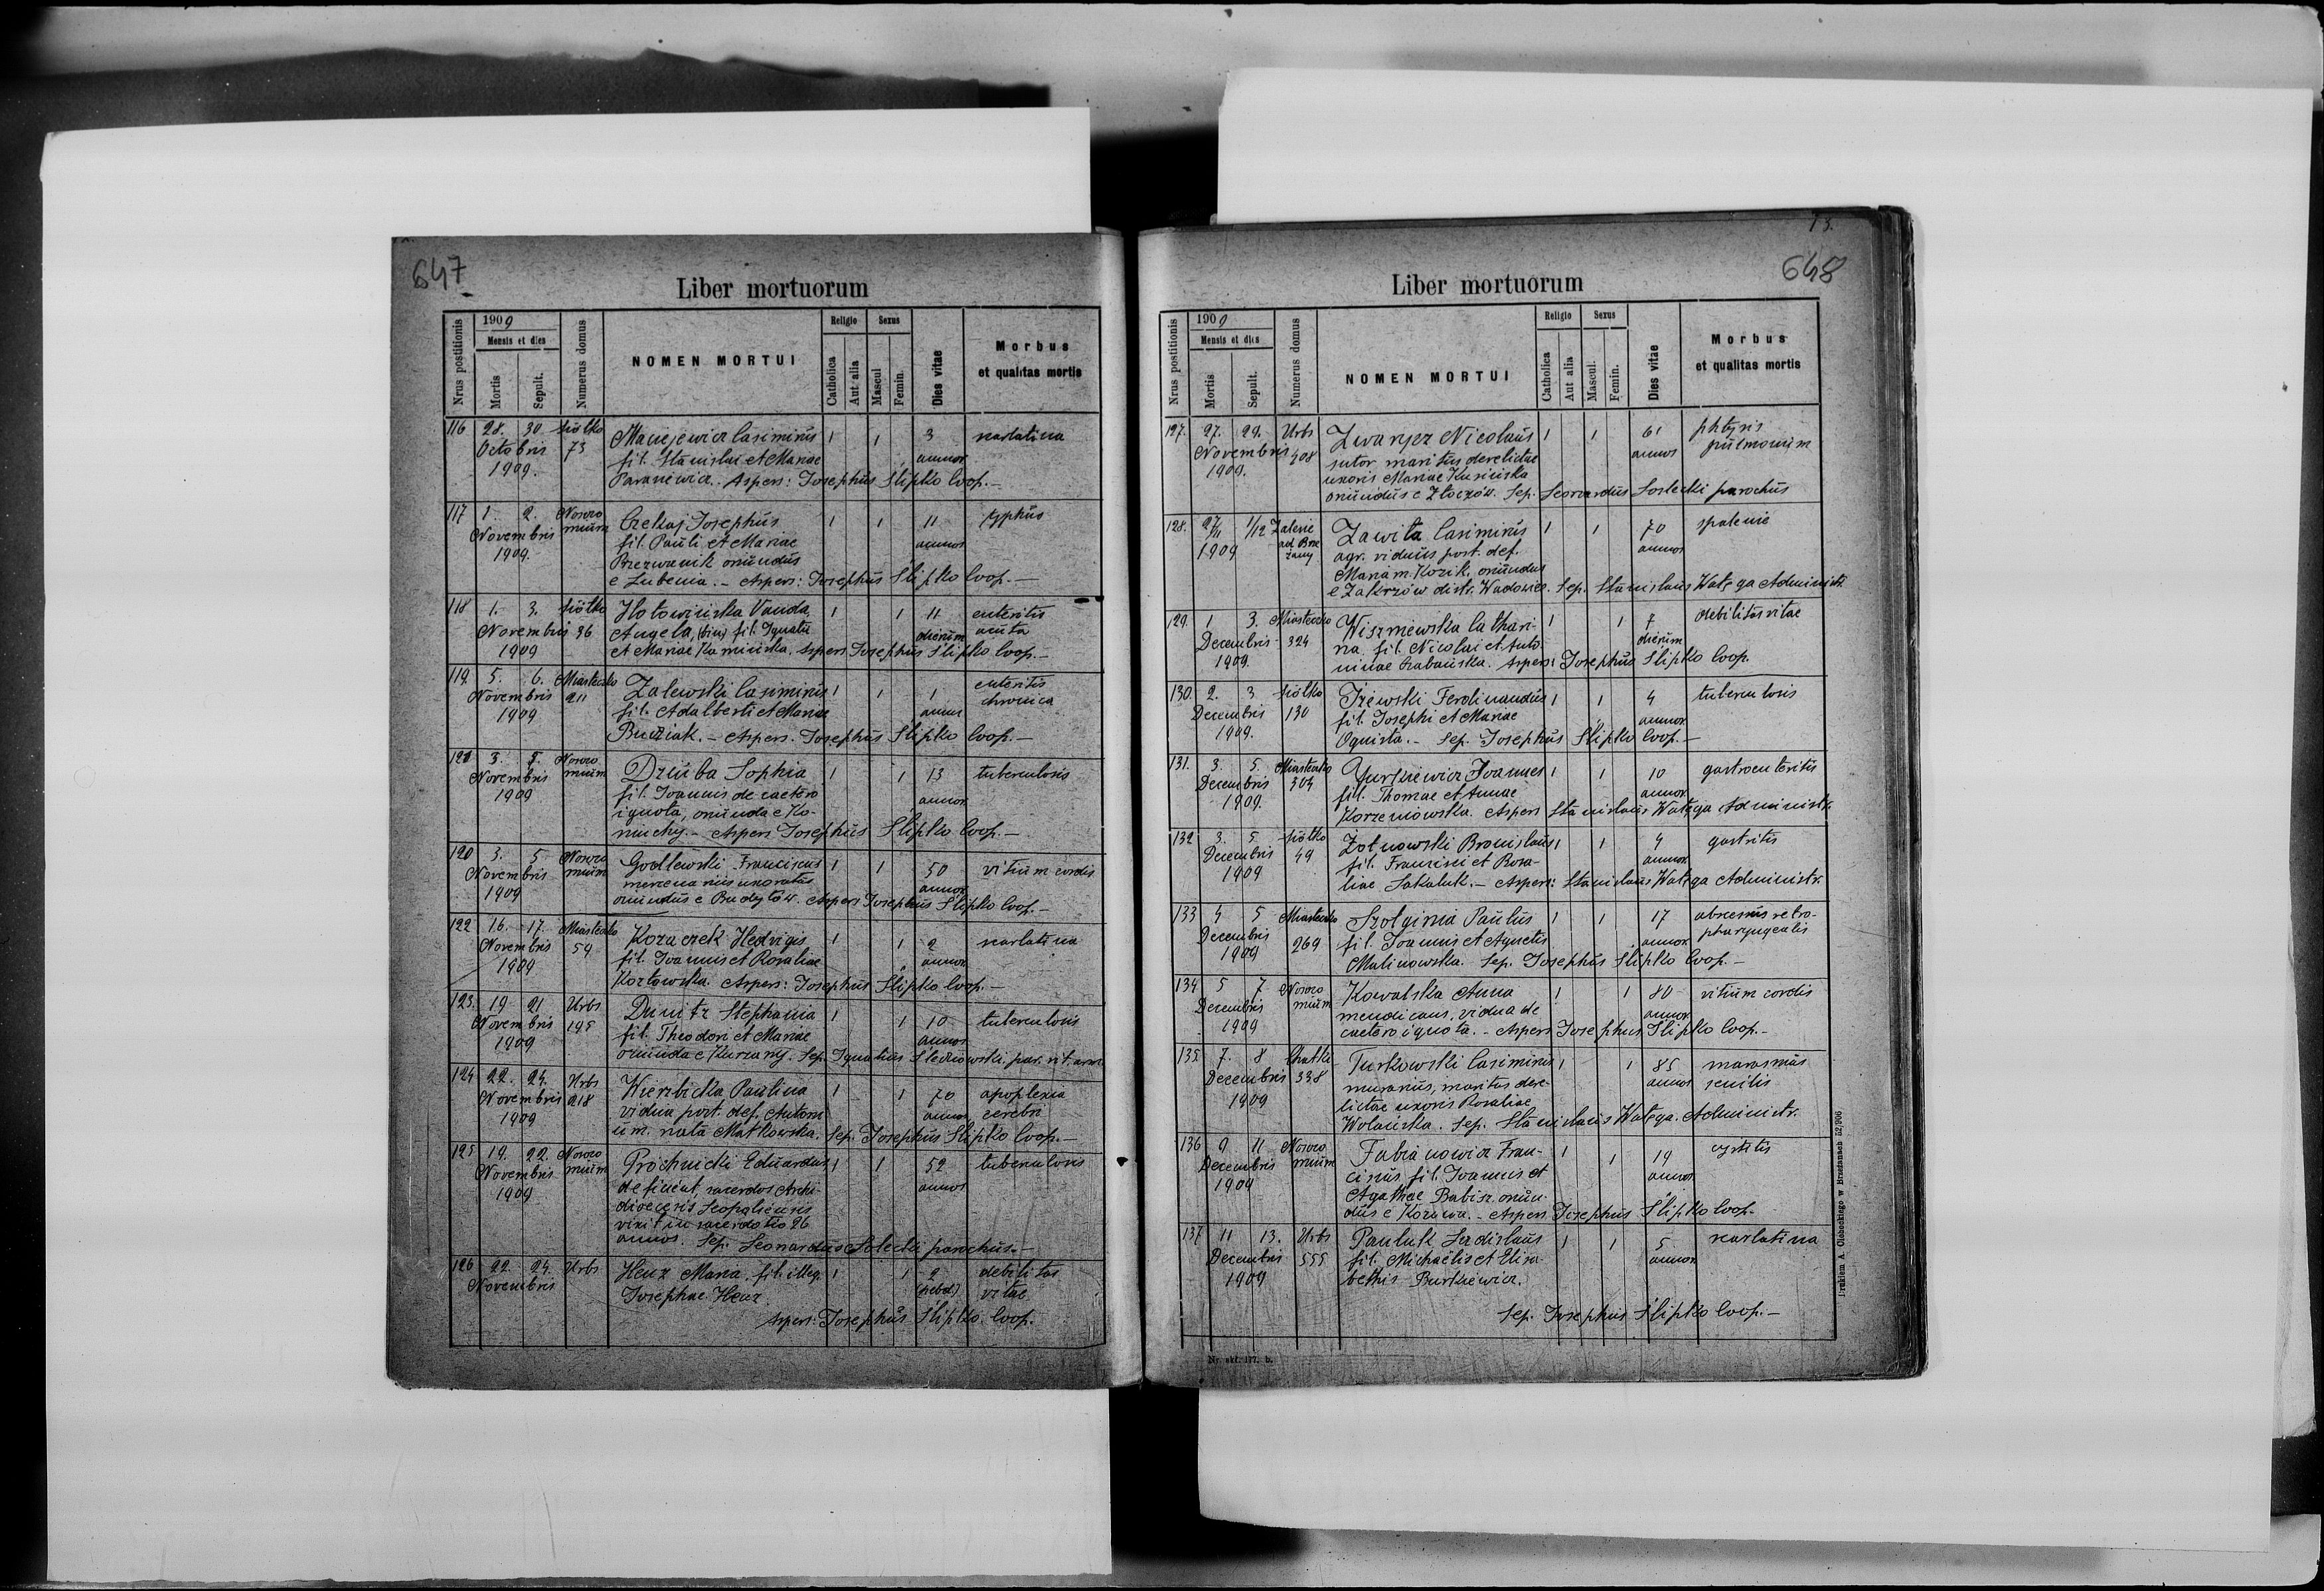 647
Liber mortuorum
Nrus postitionis
1909
Mensis et dies
Mortis
Sepult.
Numerus domus
NOMEN MORTUI
Religio
Catholica
Aut alia
Sexus
Mascul
Femin.
Dies vitae
Morbus
et qualitas mortis
116 28. 30. Siółko Maciejewicz Casimirus 1 1 3 scarlatina
Octobris 73 fil. Stanislai et Mariae annor
1909. Aspers: Josephus Ślipko Coop.-
117 1. 2. Nosoco Czekaj Josephus 1 1 11 typhus
Novembris mium fil. Pauli et Mariae annos
1909. oriundus
Aspers: Josephus Ślipko Coop.-
118 1. 3. Siółko Vanda, 1 1 11 enteritis
Novembris 36 Angela, (bin) fil. Ignatii dierum acuta
1909 et Mariae Kaminska. Aspers Josephus Ślipko Coop.-
119. 5. 6. Miasteczko Zalewski Casimirus 1 1 1 enteritis
Novembris 211 fil. Adalberti et Mariae annus chronica
1909 Budziak.- Aspers. Josephus Ślipko Coop.-
3. 5. Nosoco Dziuba Sophia 1 1 13 tuberculosis
Novembris mium fil. Joannis de caetero annor
1909 ignota, oriunda e Ko-
niuchy.- Aspers Josephus Ślipko Coop.-
120 3. 5 Nosoco Godlewski Franciscus 1 1 50 vitium cordis
Novembris mium mercenarius uxoratus annor
1909 oriundus e Budyłów. Aspers Josephus Ślipko Coop.-
122 16. 17. Miasteczko Kozaczek Hedvigis 1 1 2 scarlatina
Novembris 54 fil. Joannis et Rosaliae annor
1909 Kozłowska. Aspers: Josephus Ślipko Coop.-
123. 19 21 Urbs Dmitr Stephania 1 1 10 tuberculosis
Novembris 195 fil. Theodori et Mariae annos
1909 oriunda e Kurzany. Sep. Ignatius par. rit. arm.
124 22. 24. Urbs Wierzbicka Paulina 1 1 70 apoplexia
Novembris 218 vidua post. def. Antoni annos cerebri
1909 um. nata Małkowska. Sep. Josephus Ślipko Coop.-
125 19. 22. Nosoco Prochnicki Eduardus 1 1 52 tuberculosis
Novembris mium deficient, sacerdos Archi- annos
1909 dioecesis Leopoliensis
vixit in sacerdotio 26
annos. Sep. Leonardus Solecki parochus.-
126 22. 24. Urbs Henz Maria fil. illeg. 1 1 2 debilitas
Novembris Josephae Henz. (hebd) vitae
Aspers: Josephus Ślipko Coop.
73.
648
Liber mortuorum
Nrus postitionis
1909
Mensis et dies
Mortis
Sepult.
Numerus domus
NOMEN MORTUI
Religio
Catholica
Aut alia
Sexus
Mascul.
Femin.
Dies vitae
Morbus
et qualitas mortis
127. 27. 29. Urbs Nicolaus 1 1 61 phtysis
Novembris 408 sutor maritus derelictae annos pulmonum
1909. uxoris Mariae
oriundus e Złoczów. Sep. Leonardus Solecki parochus
128. 27/11 1/12 Zalesie Zawiła Casimirus 1 1 70 spalenie
1909 ad Brze agr. viduus post. def. annos
żany Mariam Kozik, oriundus
e Zakrzów distr. Wadowice. Sep. Stanislaus Wałęga Administr.
129. 1 3. Miasteczko Wiszniewska Cathari- 1 1 7 debilitas vitae
Decembris 324 na fil. Nicolai et Anto- dierum
1909. ninae Aspers: Josephus Ślipko Coop.
130. 2. 3 Siółko Ferdinandus 1 1 4 tuberculosis
Decembris 130 fil. Josephi et Mariae annor
1909. Ogniśta.- Sep. Josephus Ślipko Coop.-
131. 3. 5. Miasteczko Jurkiewicz Joannes 1 1 10 gastroenteritis
Decembris 304 fil. Thomae et Annae annor
1909. Korzeniowska. Aspers Stanislaus Wałęga Administr.
132 3. 5 Siółko Żołnowski Bronislaus 1 1 4 gastritis
Decembris 49 fil. Francisci et Rosa- annor
1909 liae Sakaluk.- Aspers: Stanislaus Wałęga Administr.
133 4 5 Miasteczko Szołginia Paulus 1 1 17 abscessus retro-
Decembris 269 fil. Joannis et Agnetis annor pharyngealis
1909 Malinowska. Sep. Josephus Ślipko Coop.-
134 5 7 Nosoco Kowalska Anna 1 1 80 vitium cordis
Decembris mium mendicans, vidua de annor
1909 caetero ignota.- Aspers Josephus Ślipko Coop.-
135 7. 8 Chatki Turkowski Casimirus 1 1 85 marasmus
Decembris 338 murarius, maritus dere- annos senilis
1909 lictae uxoris Rosaliae
Wolańska. Sep. Stanislaus Wałęga. Administr.
136 9 11 Nosoco Fabianowicz Fran- 1 1 19 cystitis
Decembris mium ciscus, fil. Joannis et annor
1909 Agathae Babisz. oriun-
dus e Kozowa.- Aspers Josephus Ślipko Coop.
137 11 13. Urbs Pauluk Ladislaus 1 1 5 scarlatina
Decembris 555 fil. Michaelis et Elisa- annor
1909 bethis Burkiewicz.
Sep. Josephus Ślipko Coop.-
Nr. skł. 117. b.
Drukiem A. Cichockiego w Brzeżanach 52/906